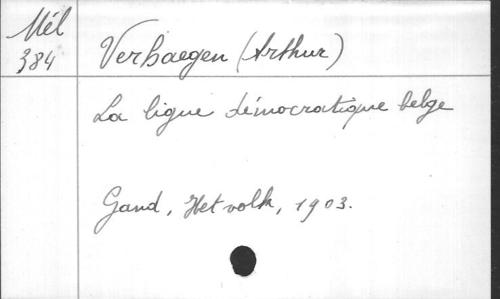 Mél
384
Verhaegen (Arthur)
La ligue démocratique belge
Gand, Het volk, 1903.